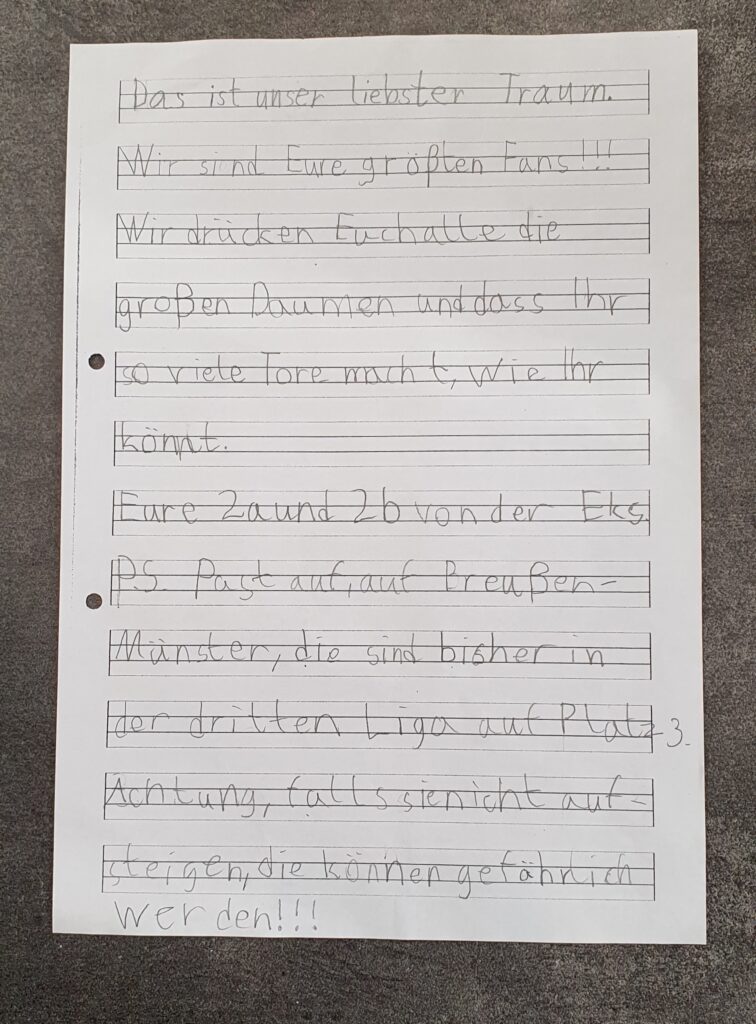 Das ist unser liebster Traum.
Wir sind Eure größten Fans!!!
Wir drücken Euch alle die
großen Daumen und dass Ihr
so viele Tore macht, wie Ihr
könnt.
Eure 2a und 2b von der Eks.
P.S. Past auf, auf Breußen-
Münster, die sind bisher in
der dritten Liga auf Platz 3.
Achtung, falls sie nicht auf-
steigen, die können gefährlich
werden!!!